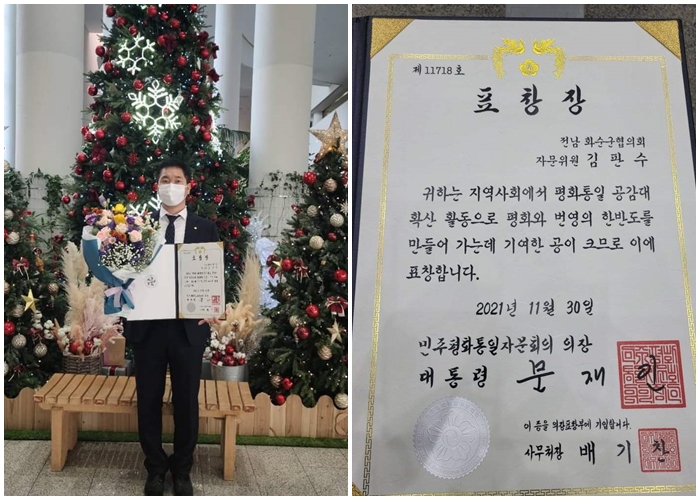 표창장
제 11718 호
표 창 장
전남 화순군협의회
자문위원 김 판 수
귀하는 지역사회에서 평화통일 공감대
확산 활동으로 평화와 번영의 한반도를
만들어 가는데 기여한 공이 크므로 이에
표창합니다.
2021년 11월 30일
민주평화통일자문회의 의장
대통령 문 재 인
이 증을 의장표창부에 기입합니다.
사무처장 배 기 찬